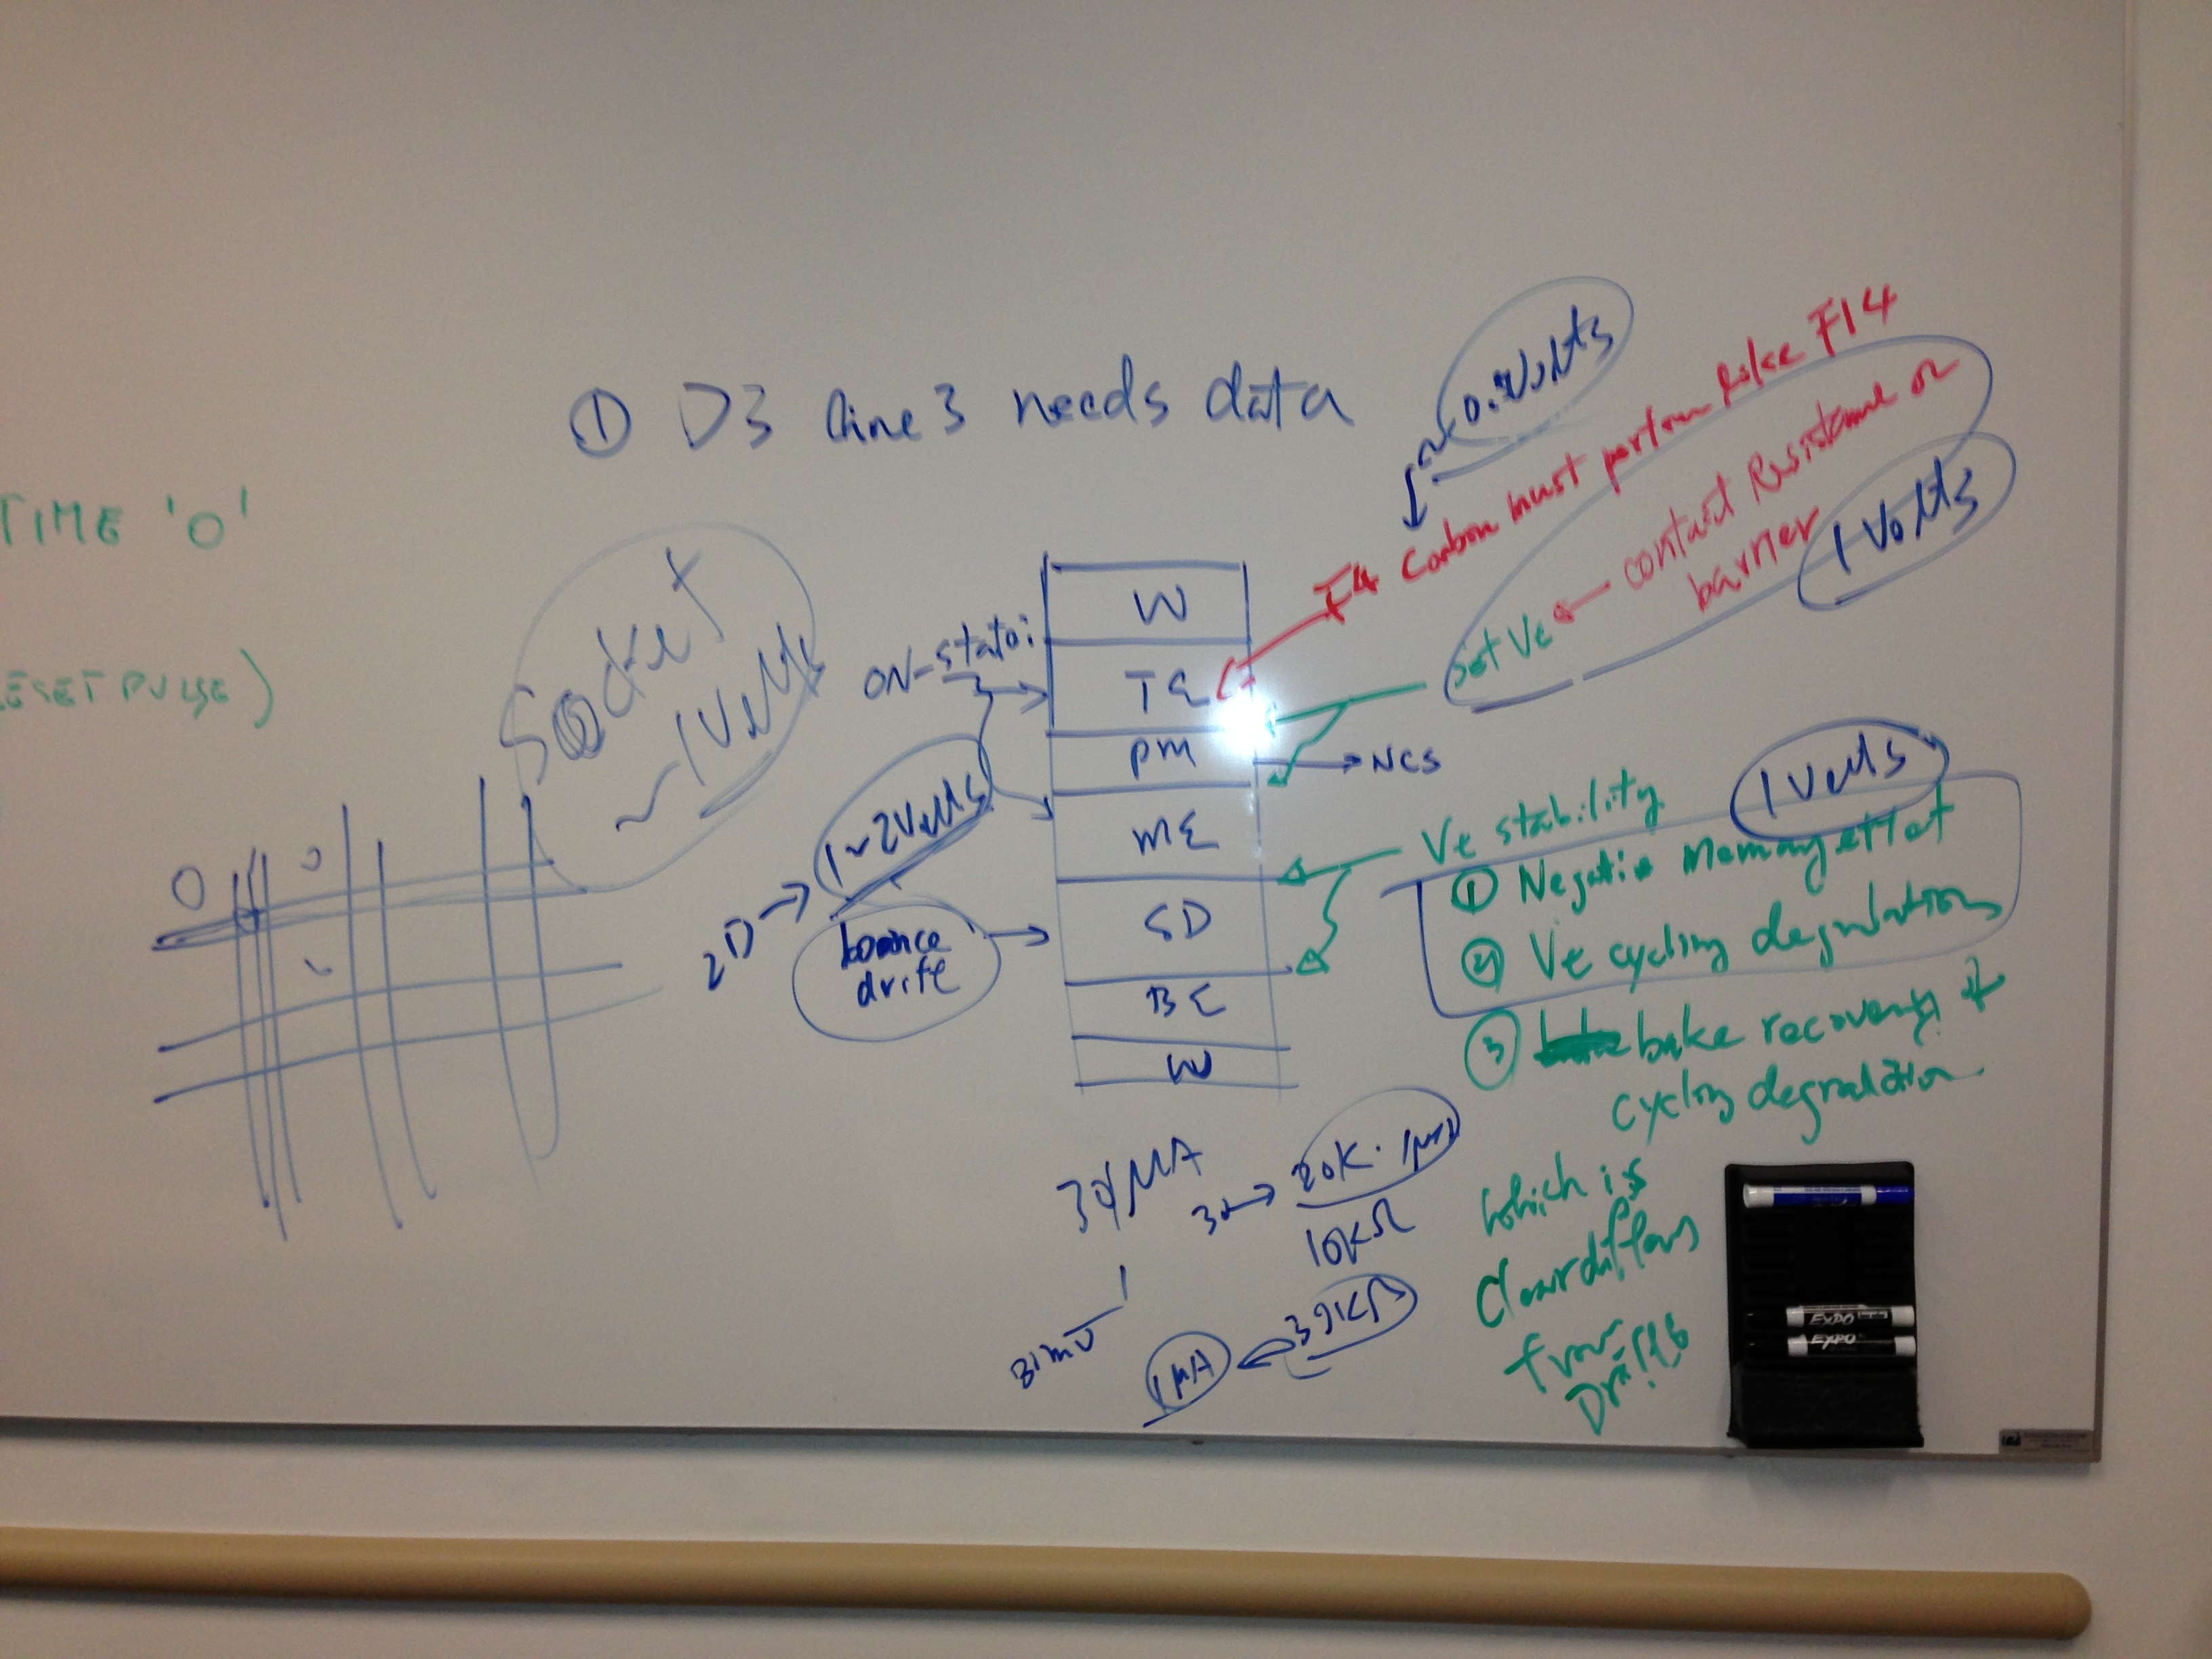 ① D3 line 3 needs data
TIME '0'
ESET PULSE)
Socket
~1Volts
0.2Volts
F4 Carbon must perform like F14
Set Ve ← contact Resistance or
barrier
1 Volts
ON-state:
W
TE
PM → NCS
ME
SD
BE
W
1~2Volts
2D →
bounce
drift
1 Volts
Ve stability
① Negative Memory effect
② Ve cycling degradation
③ bake recovery &
cycling degradation
which is
from
30μA
20K
10KΩ
39KΩ
1μA
31mV
EXPO
EXPO